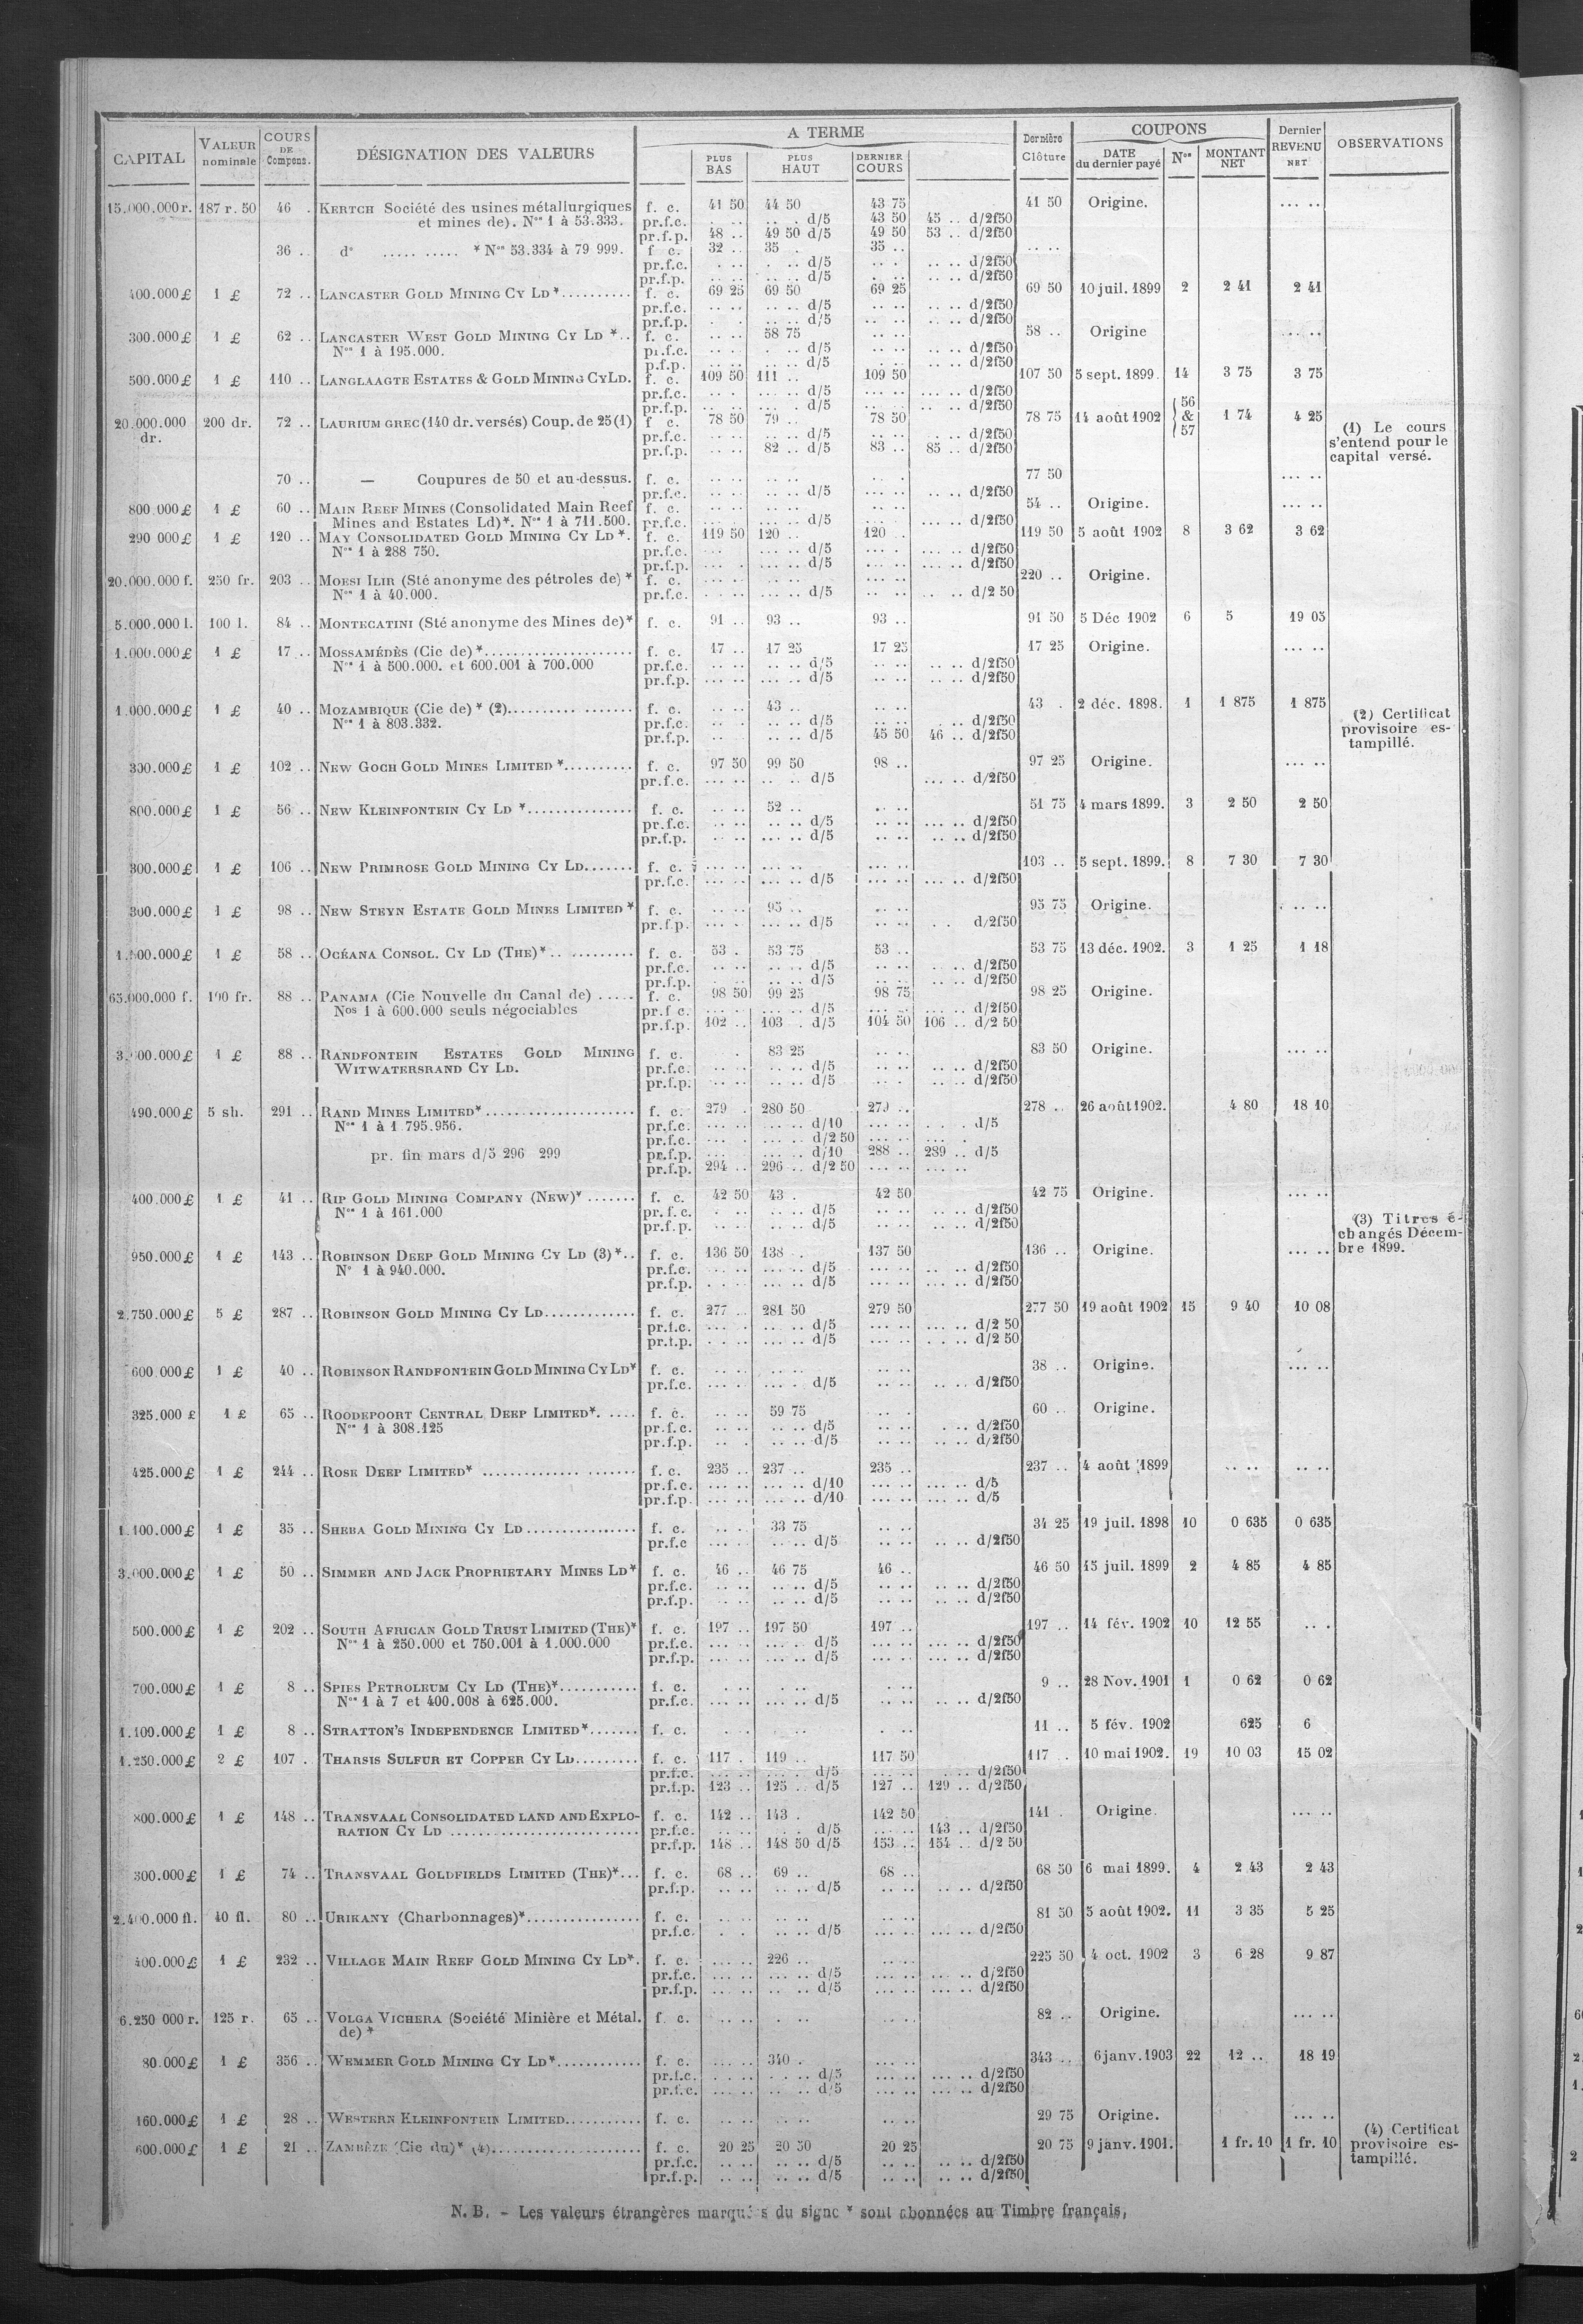 CAPITAL VALEUR nominale COURS DE Compens. DÉSIGNATION DES VALEURS A TERME PLUS BAS PLUS HAUT DERNIER COURS Dernière Clôture COUPONS DATE du dernier payé Nos MONTANT NET Dernier REVENU NET OBSERVATIONS
15.000.000 r. 187 r. 50 46 . KERTCH Société des usines métallurgiques f. c. 41 50 44 50 43 75 41 50 Origine. ... ..
et mines de). Nos 1 à 53.333. pr.f.c. . .. .. . d/5 43 50 45 .. d/2f50
pr.f.p. 48 .. 49 50 d/5 49 50 53 .. d/2f50
36 .. do ..... ..... * Nos 53.334 à 79 999. f c. 32 .. 35 . 35 .. .. ..
pr.f.c. d/5 d/2f50
pr.f.p. d/5 d/2f50
400.000 £ 1 £ 72 .. LANCASTER GOLD MINING CY LD *.......... f. c. 69 25 69 50 69 25 69 50 10 juil. 1899 2 2 41 2 41
pr.f.c. d/5 d/2f50
pr.f.p. d/5 d/2f50
300.000 £ 1 £ 62 .. LANCASTER WEST GOLD MINING CY LD *.. f. c. 58 75 58 .. Origine ... ..
Nos 1 à 195.000. pr.f.c. d/5 d/2f50
p.f.p. d/5 d/2f50
500.000 £ 1 £ 110 .. LANGLAAGTE ESTATES & GOLD MINING CY LD. f. c. 109 50 111 .. 109 50 107 50 5 sept. 1899. 14 3 75 3 75
pr.f.c. d/5 d/2f50
pr.f.p. d/5 d/2f50
20.000.000 dr. 200 dr. 72 .. LAURIUM GREC (140 dr. versés) Coup. de 25 (1) f c. 78 50 79 .. 78 50 78 75 14 août 1902 56 & 57 1 74 4 25
pr.f.c. d/5 d/2f50
pr.f.p. 82 .. d/5 83 .. 85 .. d/2f50
(1) Le cours
s'entend pour le
capital versé.
70 .. — Coupures de 50 et au-dessus. f. c. 77 50 ... ..
pr.f.c. d/5 d/2f50
800.000 £ 1 £ 60 .. MAIN REEF MINES (Consolidated Main Reef f. c. 54 .. Origine. ... ..
Mines and Estates Ld)*. Nos 1 à 711.500. pr.f.c. d/5 d/2f50
290 000 £ 1 £ 120 .. MAY CONSOLIDATED GOLD MINING CY LD *. f. c. 119 50 120 .. 120 .. 119 50 5 août 1902 8 3 62 3 62
Nos 1 à 288 750. pr.f.c. d/5 d/2f50
pr.f.p. d/5 d/2f50
20.000.000 f. 250 fr. 203 .. MOESI ILIR (Sté anonyme des pétroles de) * f. c. 220 .. Origine.
Nos 1 à 40.000. pr.f.c. d/5 d/2 50
5.000.000 l. 100 l. 84 .. MONTECATINI (Sté anonyme des Mines de)* f. c. 91 .. 93 .. 93 .. 91 50 5 Déc 1902 6 5 19 05
1.000.000 £ 1 £ 17 .. MOSSAMÉDÈS (Cie de) *..................... f. c. 17 .. 17 25 17 25 17 25 Origine. ... ..
Nos 1 à 500.000. et 600.001 à 700.000 pr.f.c. d/5 d/2f50
pr.f.p. d/5 d/2f50
1.000.000 £ 1 £ 40 .. MOZAMBIQUE (Cie de) * (2)................. f. c. 43 .. 43 . 2 déc. 1898. 1 1 875 1 875
Nos 1 à 803.332. pr.f.c. d/5 d/2f50
pr.f.p. d/5 45 50 46 .. d/2f50
(2) Certificat
provisoire es-
tampillé.
300.000 £ 1 £ 102 .. NEW GOCH GOLD MINES LIMITED *.......... f. c. 97 50 99 50 98 .. 97 25 Origine. ... ..
pr.f.c. d/5 d/2f50
800.000 £ 1 £ 56 .. NEW KLEINFONTEIN CY LD *............... f. c. 52 .. 51 75 4 mars 1899. 3 2 50 2 50
pr.f.c. d/5 d/2f50
pr.f.p. d/5 d/2f50
300.000 £ 1 £ 106 .. NEW PRIMROSE GOLD MINING CY LD....... f. c. 103 .. 5 sept. 1899. 8 7 30 7 30
pr.f.c. d/5 d/2f50
300.000 £ 1 £ 98 .. NEW STEYN ESTATE GOLD MINES LIMITED * f. c. 95 .. 95 75 Origine. ... ..
pr.f.p. d/5 d/2f50
1 £ 58 .. OCÉANA CONSOL. CY LD (THE)*............ f. c. 53 . 53 75 53 .. 53 75 13 déc. 1902. 3 1 25 1 18
pr.f.c. d/5 d/2f50
pr.f.p. d/5 d/2f50
65.000.000 f. 100 fr. 88 .. PANAMA (Cie Nouvelle du Canal de) ..... f. c. 98 50 99 25 98 75 98 25 Origine.
Nos 1 à 600.000 seuls négociables pr.f c. d/5 d/2f50
pr.f.p. 102 .. 103 . d/5 104 50 106 .. d/2 50
1 £ 88 .. RANDFONTEIN ESTATES GOLD MINING f. c. 83 25 83 50 Origine. ... ..
WITWATERSRAND CY LD. pr.f.c. d/5 d/2f50
pr.f.p. d/5 d/2f50
490.000 £ 5 sh. 291 .. RAND MINES LIMITED*..................... f. c. 279 . 280 50 279 .. 278 .. 26 août 1902. 4 80 18 10
Nos 1 à 1 795.956. pr.f.c. d/10 d/5
pr.f.c. d/2 50
pr. fin mars d/5 296 299 pr.f.p. d/10 288 .. 289 .. d/5
pr.f.p. 294 .. 296 .. d/2 50
400.000 £ 1 £ 41 .. RIP GOLD MINING COMPANY (NEW)* ....... f. c. 42 50 43 . 42 50 42 75 Origine. ... ..
Nos 1 à 161.000 pr.f.c. d/5 d/2f50
pr.f.p. d/5 d/2f50
(3) Titres é-
changés Décem-
bre 1899.
950.000 £ 1 £ 143 .. ROBINSON DEEP GOLD MINING CY LD (3)*.. f. c. 136 50 138 . 137 50 136 .. Origine. ... ..
No 1 à 940.000. pr.f.c. d/5 d/2f50
pr.f.p. d/5 d/2f50
2.750.000 £ 5 £ 287 .. ROBINSON GOLD MINING CY LD............. f. c. 277 .. 281 50 279 50 277 50 19 août 1902 15 9 40 10 08
pr.f.c. d/5 d/2 50
pr.f.p. d/5 d/2 50
600.000 £ 1 £ 40 .. ROBINSON RANDFONTEIN GOLD MINING CY LD* f. c. 38 .. Origine. ... ..
pr.f.c. d/5 d/2f50
325.000 £ 1 £ 65 .. ROODEPOORT CENTRAL DEEP LIMITED*. .... f. c. 59 75 60 .. Origine.
Nos 1 à 308.125 pr.f.c. d/5 d/2f50
pr.f.p. d/5 d/2f50
425.000 £ 1 £ 244 .. ROSE DEEP LIMITED* ..................... f. c. 235 .. 237 .. 235 .. 237 .. 4 août 1899 .. .. .. ..
pr.f.c. d/10 d/5
pr.f.p. d/10 d/5
1.100.000 £ 1 £ 35 .. SHEBA GOLD MINING CY LD................ f. c. 33 75 34 25 19 juil. 1898 10 0 635 0 635
pr.f.c d/5 d/2f50
3.000.000 £ 1 £ 50 .. SIMMER AND JACK PROPRIETARY MINES LD* f. c. 46 .. 46 75 46 .. 46 50 15 juil. 1899 2 4 85 4 85
pr.f.c. d/5 d/2f50
pr.f.p. d/5 d/2f50
500.000 £ 1 £ 202 .. SOUTH AFRICAN GOLD TRUST LIMITED (THE)* f. c. 197 .. 197 50 197 .. 197 .. 14 fév. 1902 10 12 55 .. .
Nos 1 à 250.000 et 750.001 à 1.000.000 pr.f.c. d/5 d/2f50
pr.f.p. d/5 d/2f50
700.000 £ 1 £ 8 .. SPIES PETROLEUM CY LD (THE)*........... f. c. 9 .. 28 Nov. 1901 1 0 62 0 62
Nos 1 à 7 et 400.008 à 625.000. pr.f.c. d/5 d/2f50
1.100.000 £ 1 £ 8 .. STRATTON'S INDEPENDENCE LIMITED*....... f. c. 11 .. 5 fév. 1902 625 6
1.250.000 £ 2 £ 107 . THARSIS SULFUR ET COPPER CY LD......... f. c. 117 . 119 .. 117 50 117 . 10 mai 1902. 19 10 03 15 02
pr.f.c. d/5 d/2f50
pr.f.p. 123 .. 125 .. d/5 127 .. 129 .. d/2f50
800.000 £ 1 £ 148 .. TRANSVAAL CONSOLIDATED LAND AND EXPLO- f. c. 142 .. 143 . 142 50 141 . Origine. ... ..
RATION CY LD .......................... pr.f.c. d/5 143 .. d/2f50
pr.f.p. 148 .. 148 50 d/5 153 .. 154 .. d/2 50
300.000 £ 1 £ 74 .. TRANSVAAL GOLDFIELDS LIMITED (THE)*... f. c. 68 .. 69 .. 68 .. 68 50 6 mai 1899. 4 2 43 2 43
pr.f.p. d/5 d/2f50
2.400.000 fl. 40 fl. 80 .. URIKANY (Charbonnages)*................ f. c. 81 50 5 août 1902. 11 3 35 5 25
pr.f.c. d/5 d/2f50
400.000 £ 1 £ 232 .. VILLAGE MAIN REEF GOLD MINING CY LD*. f. c. 226 .. 225 50 4 oct. 1902 3 6 28 9 87
pr.f.c. d/5 d/2f50
pr.f.p. d/5 d/2f50
6.250 000 r. 125 r. 65 .. VOLGA VICHERA (Société Minière et Métal. f. c. 82 .. Origine. ... ..
de) *
80.000 £ 1 £ 356 .. WEMMER GOLD MINING CY LD*............ f. c. 340 . 343 .. 6 janv. 1903 22 12 .. 18 19
pr.f.c. d/5 d/2f50
pr.f.c. d/5 d/2f50
160.000 £ 1 £ 28 .. WESTERN KLEINFONTEIN LIMITED........... f. c. 29 75 Origine. ... ..
600.000 £ 1 £ 21 .. ZAMBÈZE (Cie du)* (4)..................... f. c. 20 25 20 50 20 25 20 75 9 janv. 1901. 1 fr. 10 1 fr. 10
pr.f.c. d/5 d/2f50
pr.f.p. d/5 d/2f50
(4) Certificat
provisoire es-
tampillé.
N. B. - Les valeurs étrangères marquées du signe * sont abonnées au Timbre français,